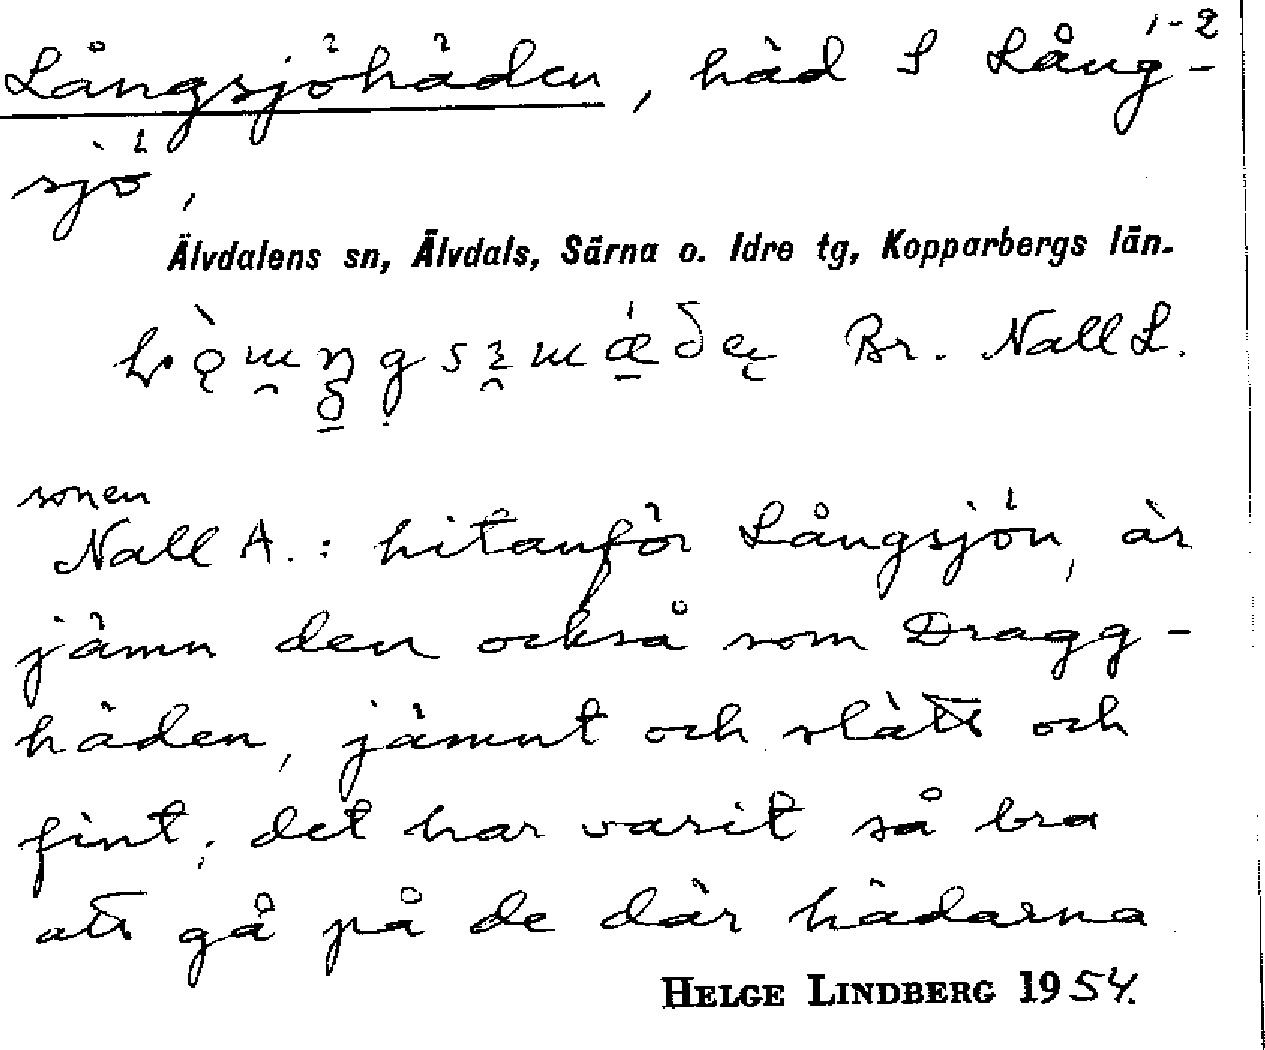 Långsjöhäden, häd S Lång-
1-2
sjö,
Älvdalens sn, Älvdals, Särna o. Idre tg, Kopparbergs län.
Br. Nall L.
sonen
Nall A.: hitanför Långsjön, är
jämn den också som Dragg-
häden, jämnt och slätt och
fint; det har varit så bra
att gå på de där hädarna
HELGE LINDBERG 1954.